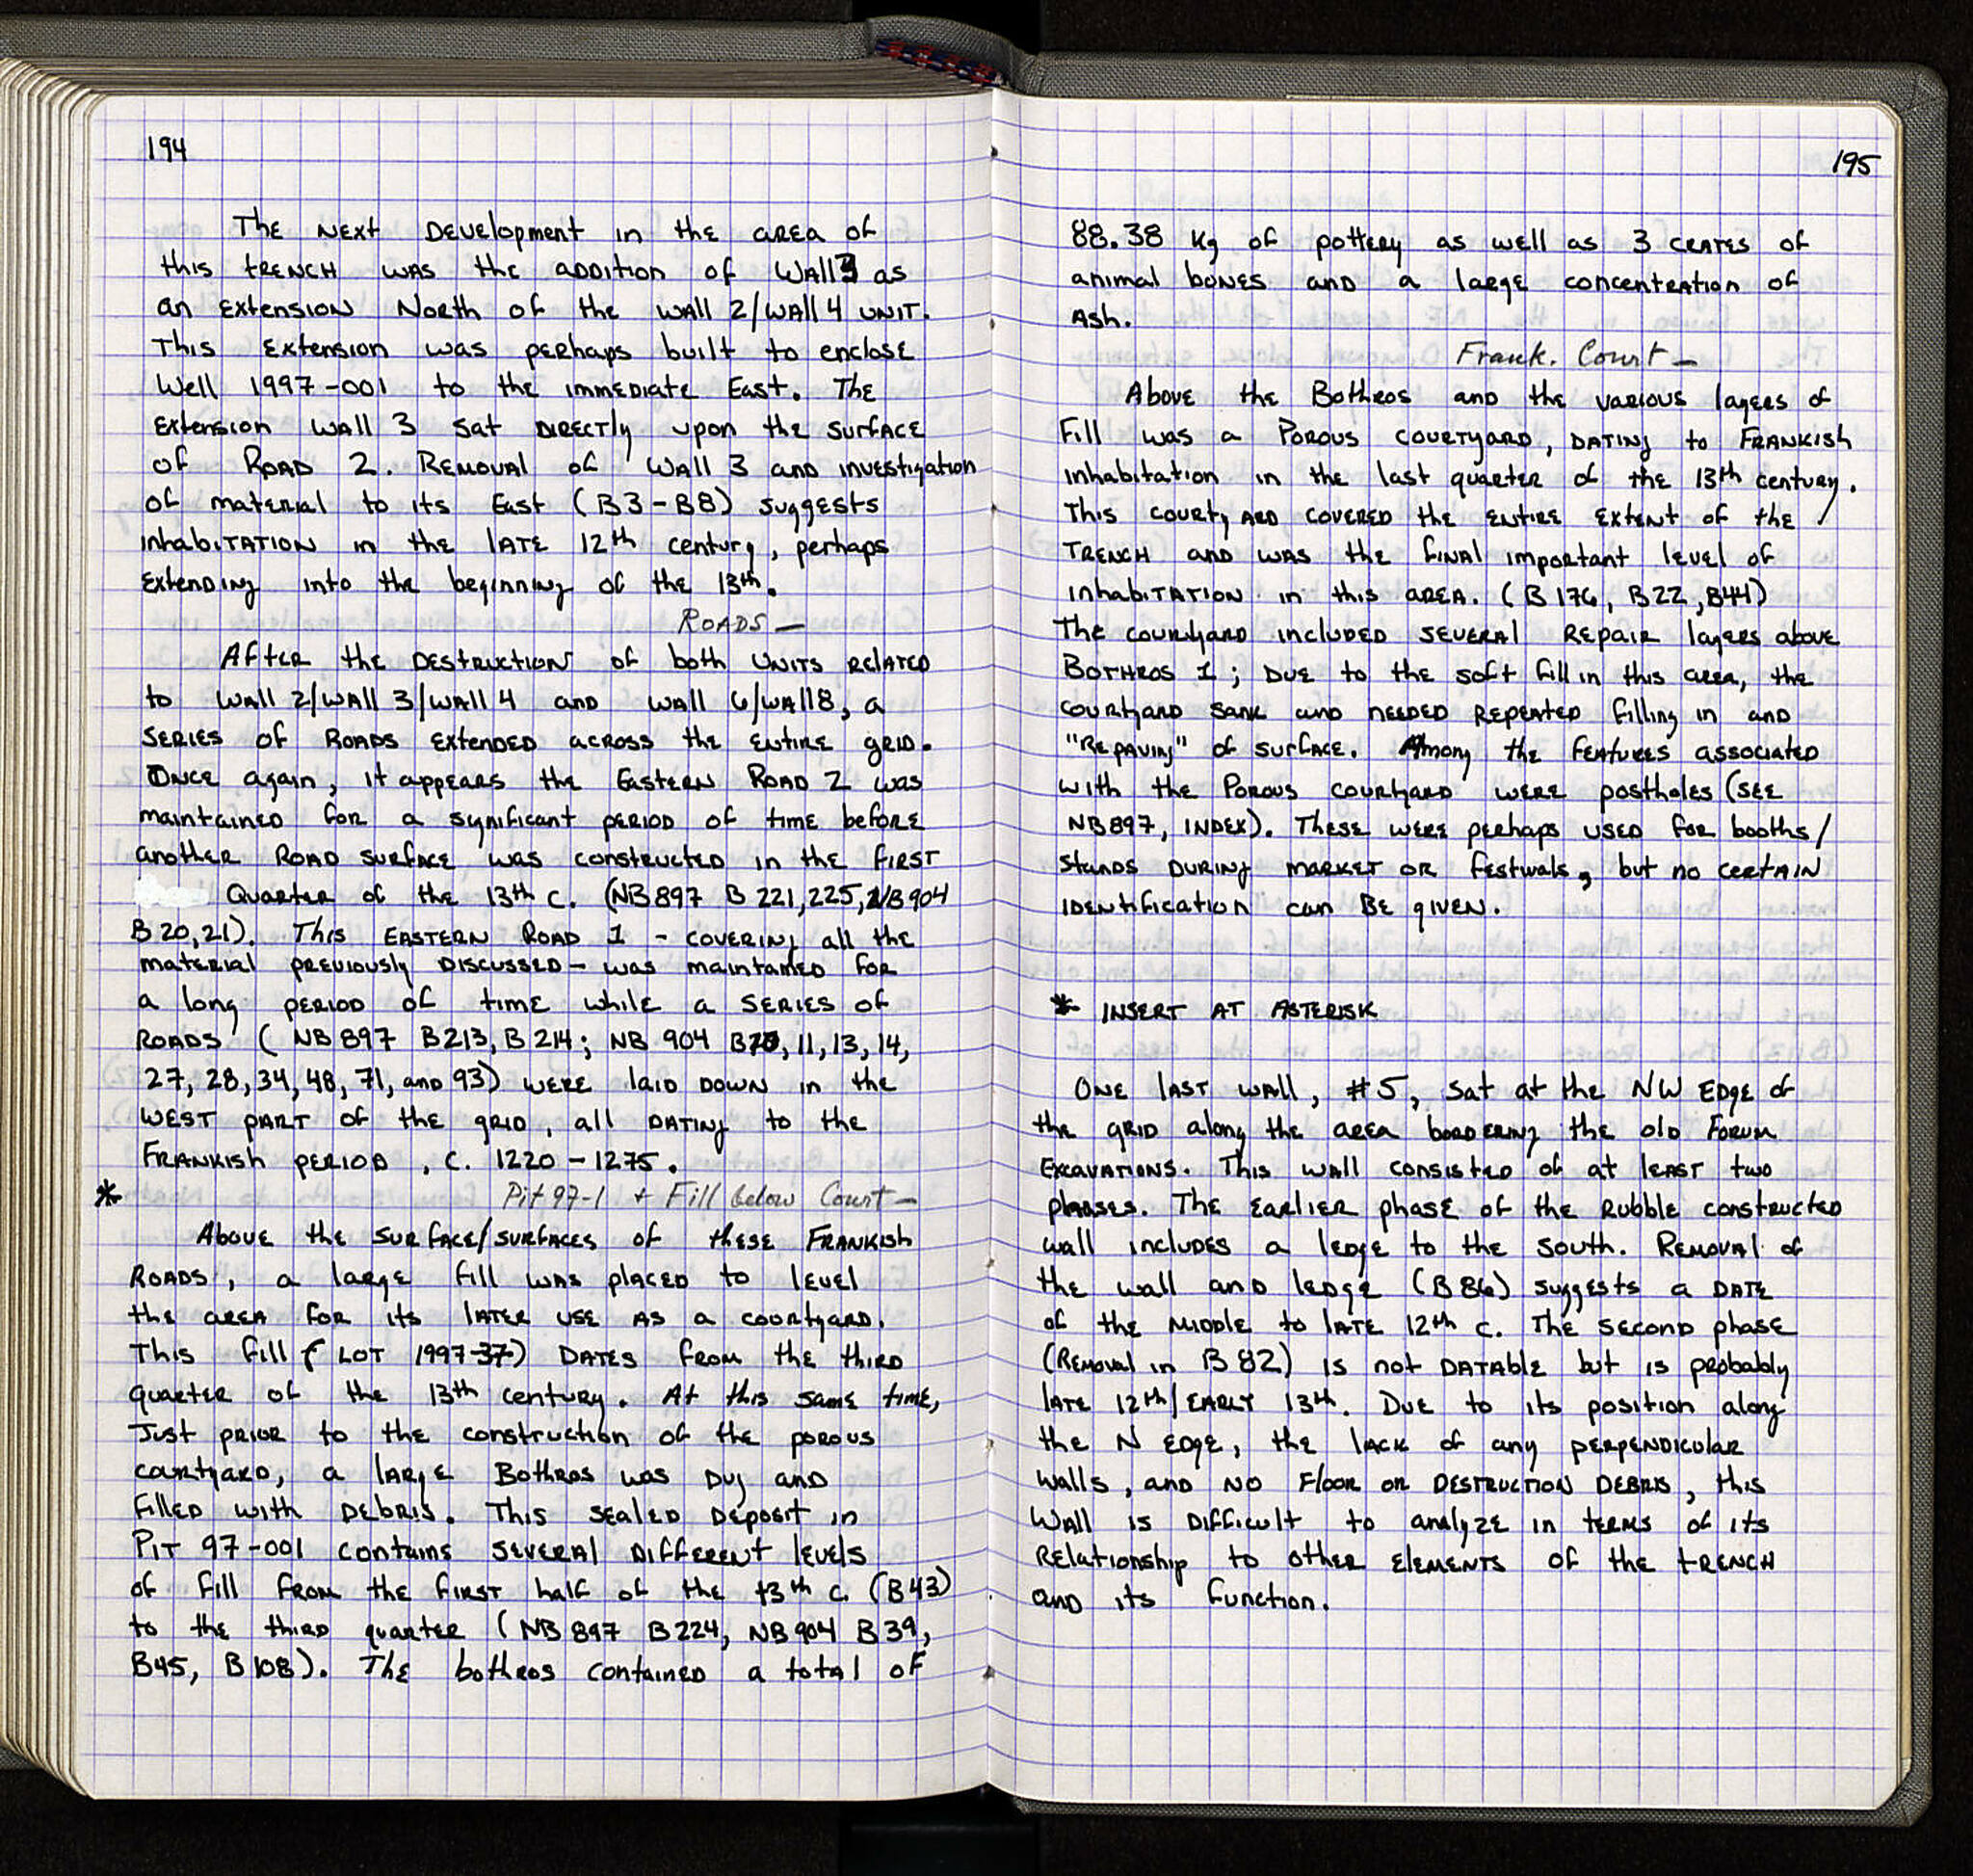 194
The next development in the area of
this trench was the addition of Wall 3 as
an extension North of the Wall 2/Wall 4 unit.
This extension was perhaps built to enclose
Well 1997-001 to the immediate East. The
extension Wall 3 sat directly upon the surface
of Road 2. Removal of Wall 3 and investigation
of material to its East (B3-B8) suggests
inhabitation in the late 12th century, perhaps
extending into the beginning of the 13th.
Roads —
After the destruction of both units related
to Wall 2/Wall 3/Wall 4 and Wall 6/Wall 8, a
series of roads extended across the entire grid.
Once again, it appears the Eastern Road 2 was
maintained for a significant period of time before
another road surface was constructed in the first
Quarter of the 13th c. (NB 897 B 221, 225, NB 904
B 20, 21). This Eastern Road 1 - covering all the
material previously discussed - was maintained for
a long period of time while a series of
roads (NB 897 B213, B 214; NB 904 B10, 11, 13, 14,
27, 28, 34, 48, 71, and 93) were laid down in the
west part of the grid, all dating to the
Frankish period, c. 1220 - 1275.
* Pit 97-1 + Fill below Court —
Above the surface/surfaces of these Frankish
roads, a large fill was placed to level
the area for its later use as a courtyard.
This fill (Lot 1997-37) dates from the third
quarter of the 13th century. At this same time,
just prior to the construction of the porous
courtyard, a large Bothros was dug and
filled with debris. This sealed deposit in
Pit 97-001 contains several different levels
of fill from the first half of the 13th c. (B43)
to the third quarter (NB 897 B 224, NB 904 B 39,
B45, B 108). The bothros contained a total of
195
88.38 kg of pottery as well as 3 crates of
animal bones and a large concentration of
Ash.
Frank. Court —
Above the Bothros and the various layers of
fill was a Porous courtyard, dating to Frankish
inhabitation in the last quarter of the 13th century.
This courtyard covered the entire extent of the
trench and was the final important level of
inhabitation in this area. (B 176, B 22, B44)
The courtyard included several repair layers above
Bothros 1; due to the soft fill in this area, the
courtyard sank and needed repeated filling in and
"Repaving" of surface. Among the features associated
with the Porous courtyard were postholes (see
NB 897, index). These were perhaps used for booths/
stands during market or festivals, but no certain
identification can be given.
* Insert at asterisk
One last wall, #5, sat at the NW edge of
the grid along the area bordering the old Forum
excavations. This wall consisted of at least two
phases. The earlier phase of the rubble constructed
wall includes a ledge to the south. Removal of
the wall and ledge (B 86) suggests a date
of the middle to late 12th c. The second phase
(Removal in B 82) is not datable but is probably
late 12th/early 13th. Due to its position along
the N edge, the lack of any perpendicular
walls, and no floor or destruction debris, this
wall is difficult to analyze in terms of its
relationship to other elements of the trench
and its function.